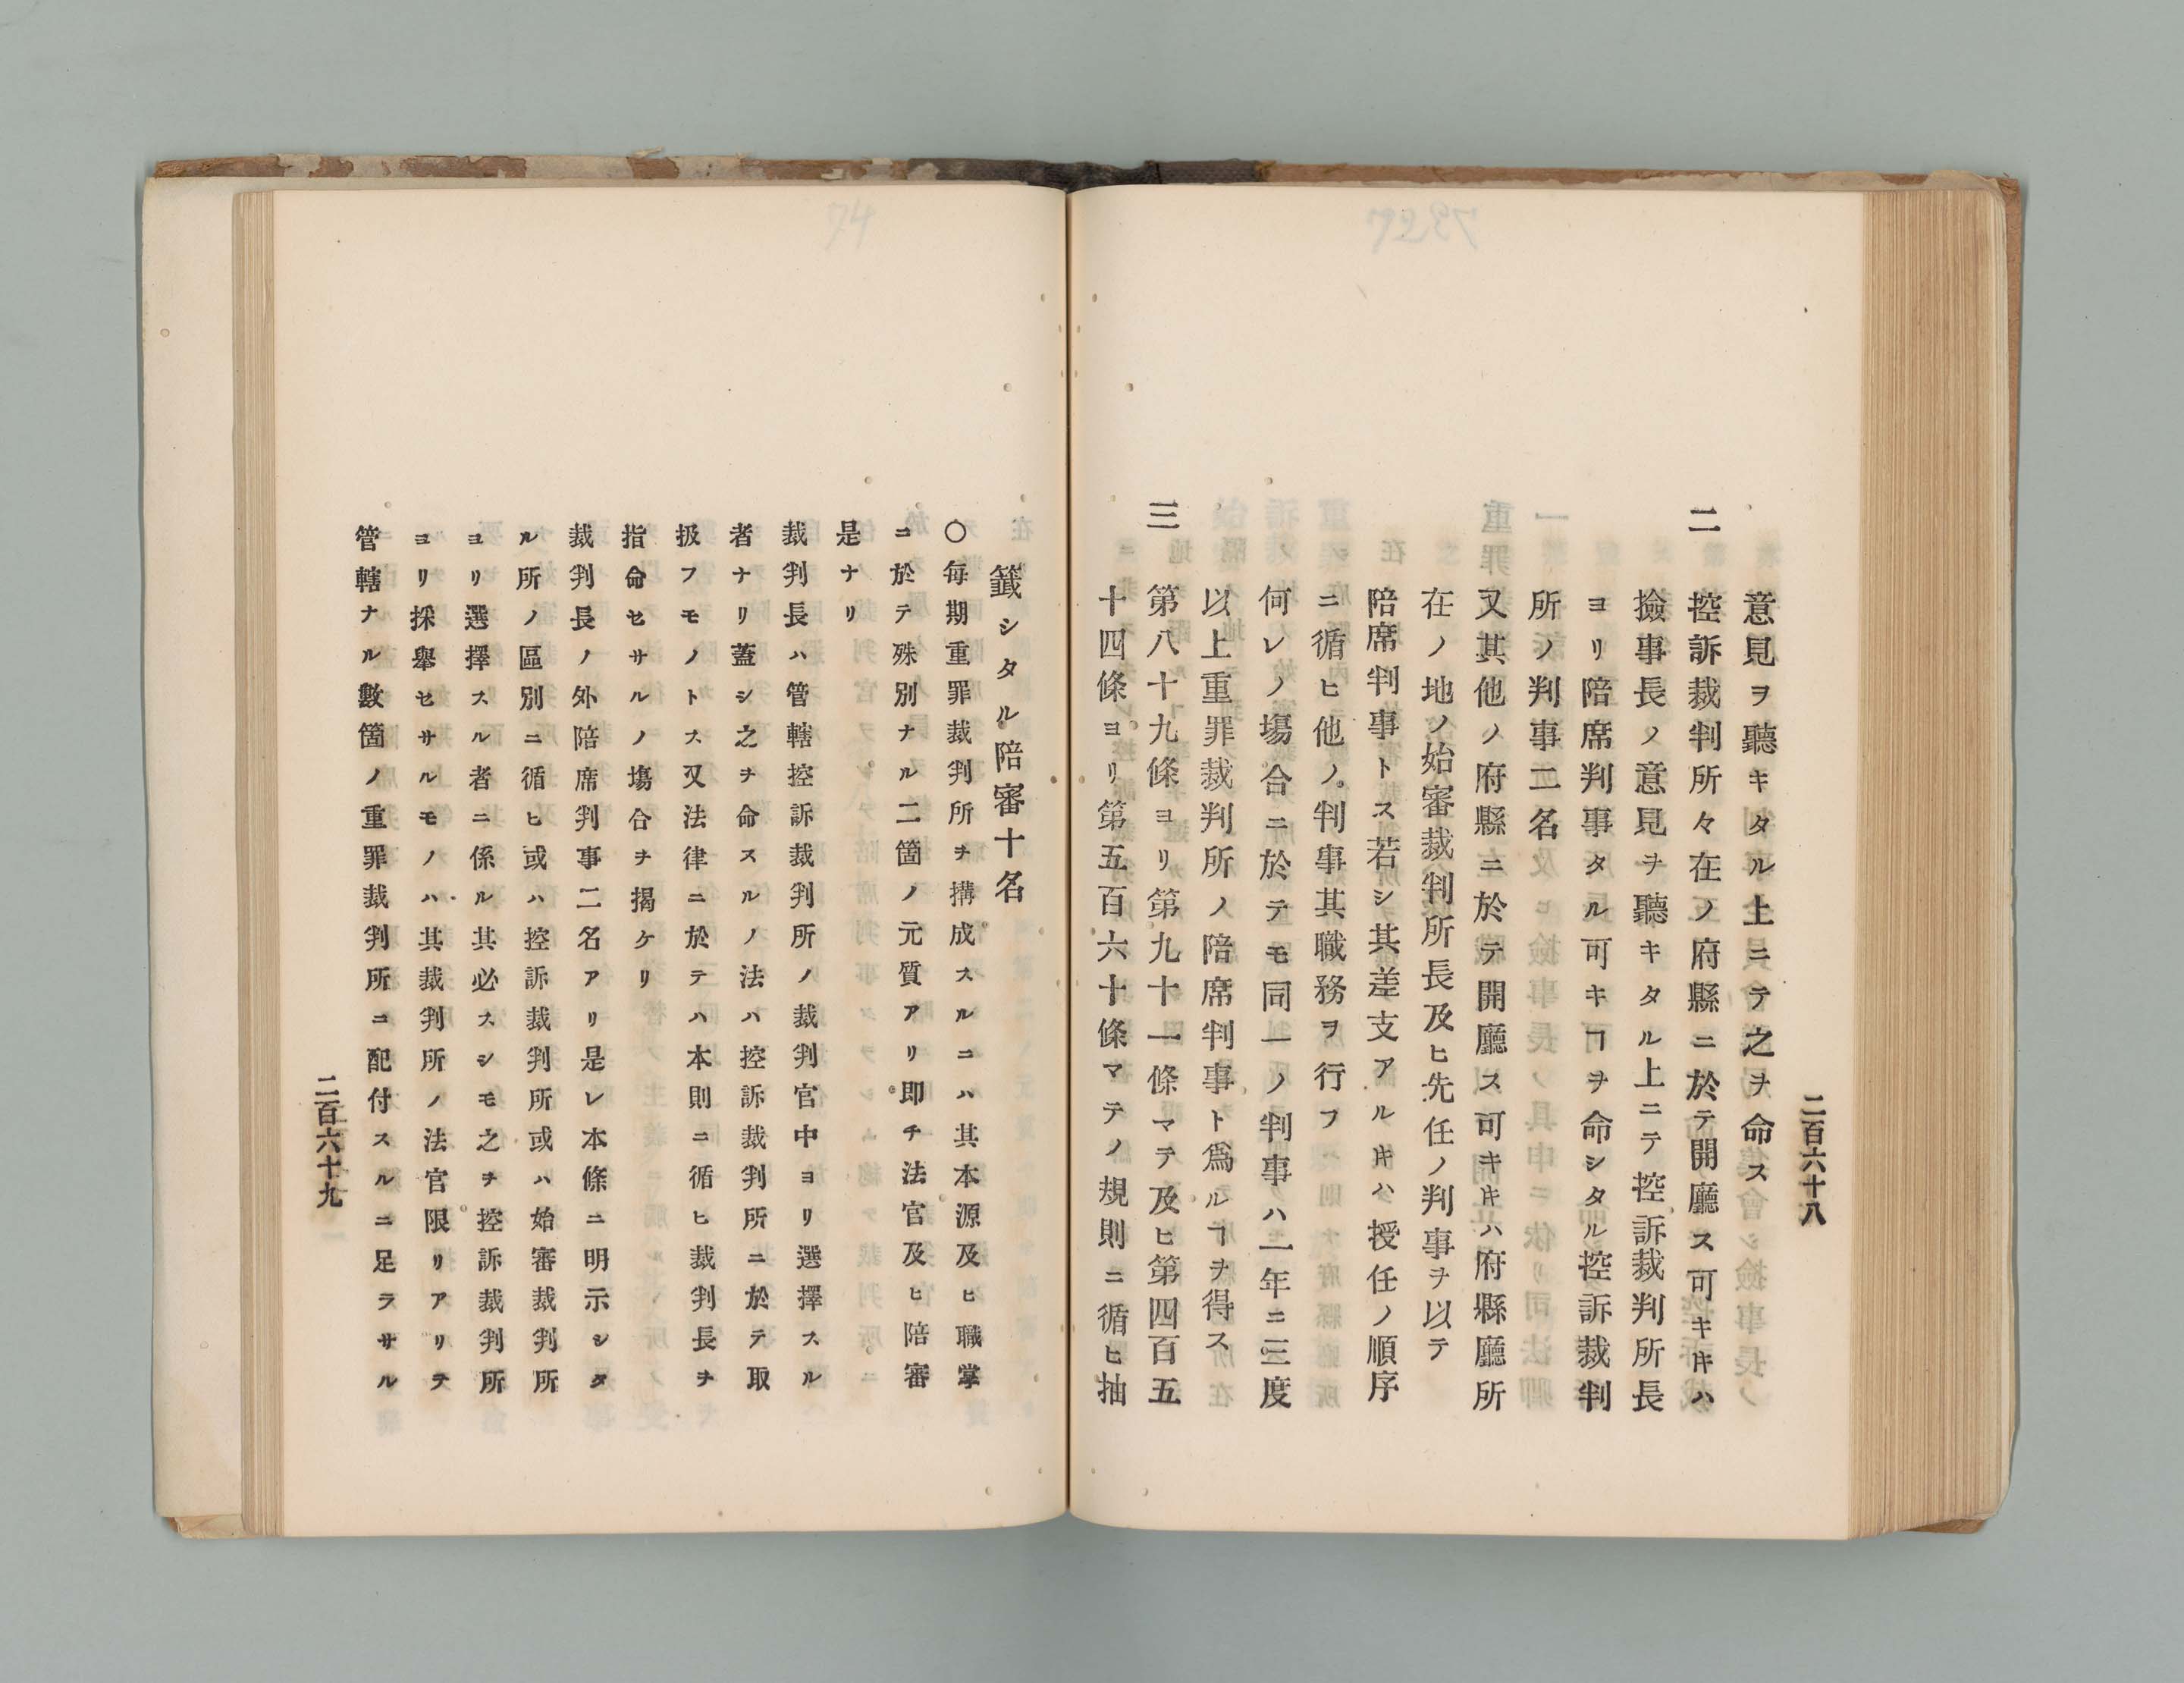 二百六十八
意見ヲ聽キタル上ニテ之ヲ命ス
二 控訴裁判所々在ノ府縣ニ於テ開廳ス可キヰハ
撿事長ノ意見ヲ聽キタル上ニテ控訴裁判所長
ヨリ陪席判事タル可キヿヲ命シタル控訴裁判
所ノ判事二名
又其他ノ府縣ニ於テ開廳ス可キヰハ府縣廳所
在ノ地ノ始審裁判所長及ヒ先任ノ判事ヲ以テ
陪席判事トス若シ其差支アルヰハ授任ノ順序
ニ循ヒ他ノ判事其職務ヲ行フ
何レノ塲合ニ於テモ同一ノ判事ハ一年ニ三度
以上重罪裁判所ノ陪席判事ト爲ルヿヲ得ス
三 第八十九條ヨリ第九十一條マテ及ヒ第四百五
十四條ヨリ第五百六十條マテノ規則ニ循ヒ抽
籤シタル陪審十名
〇每期重罪裁判所ヲ搆成スルニハ其本源及ヒ職掌
ニ於テ殊別ナル二箇ノ元質アリ即チ法官及ヒ陪審
是ナリ
裁判長ハ管轄控訴裁判所ノ裁判官中ヨリ選擇スル
者ナリ蓋シ之ヲ命スルノ法ハ控訴裁判所ニ於テ取
扱フモノトス又法律ニ於テハ本則ニ循ヒ裁判長ヲ
指命セサルノ塲合ヲ揭ケリ
裁判長ノ外陪席判事二名アリ是レ本條ニ明示シタ
ル所ノ區別ニ循ヒ或ハ控訴裁判所或ハ始審裁判所
ヨリ選擇スル者ニ係ル其必スシモ之ヲ控訴裁判所
ヨリ採擧セサルモノハ其裁判所ノ法官限リアリテ
管轄ナル數箇ノ重罪裁判所ニ配付スルニ足ラサル
二百六十九